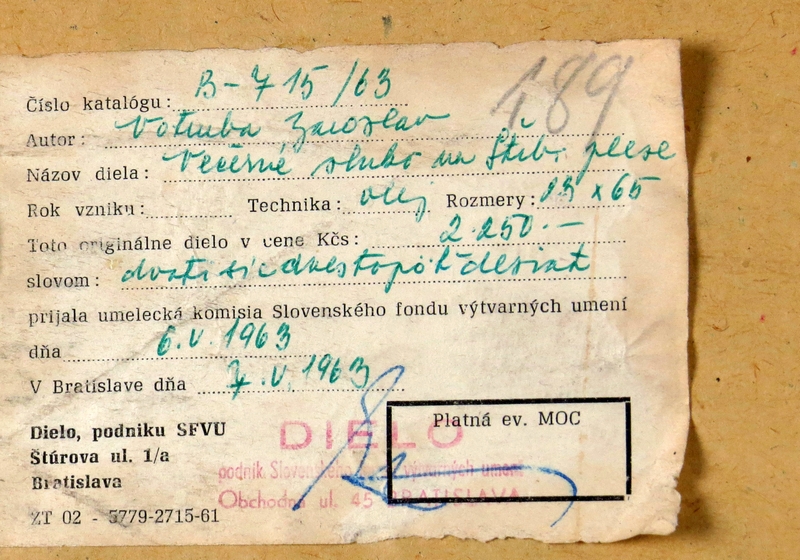 489
Číslo katalógu: B-715/63
Autor: Votruba Jaroslav
Názov diela: Večerné slnko na Štrb. plese
Rok vzniku: Technika: olej Rozmery: x 65
Toto originálne dielo v cene Kčs: 2.250.—
slovom: dvatisícdvestopäťdesiat
prijala umelecká komisia Slovenského fondu výtvarných umení
dňa 6.V.1963
V Bratislave dňa 7.V.1963
Platná ev. MOC
Dielo, podniku SFVU
Štúrova ul. 1/a
Bratislava
DIELO
podnik Slovenského výtvarných umení
Obchodná ul. 45 BRATISLAVA
ZT 02 - 5779-2715-61